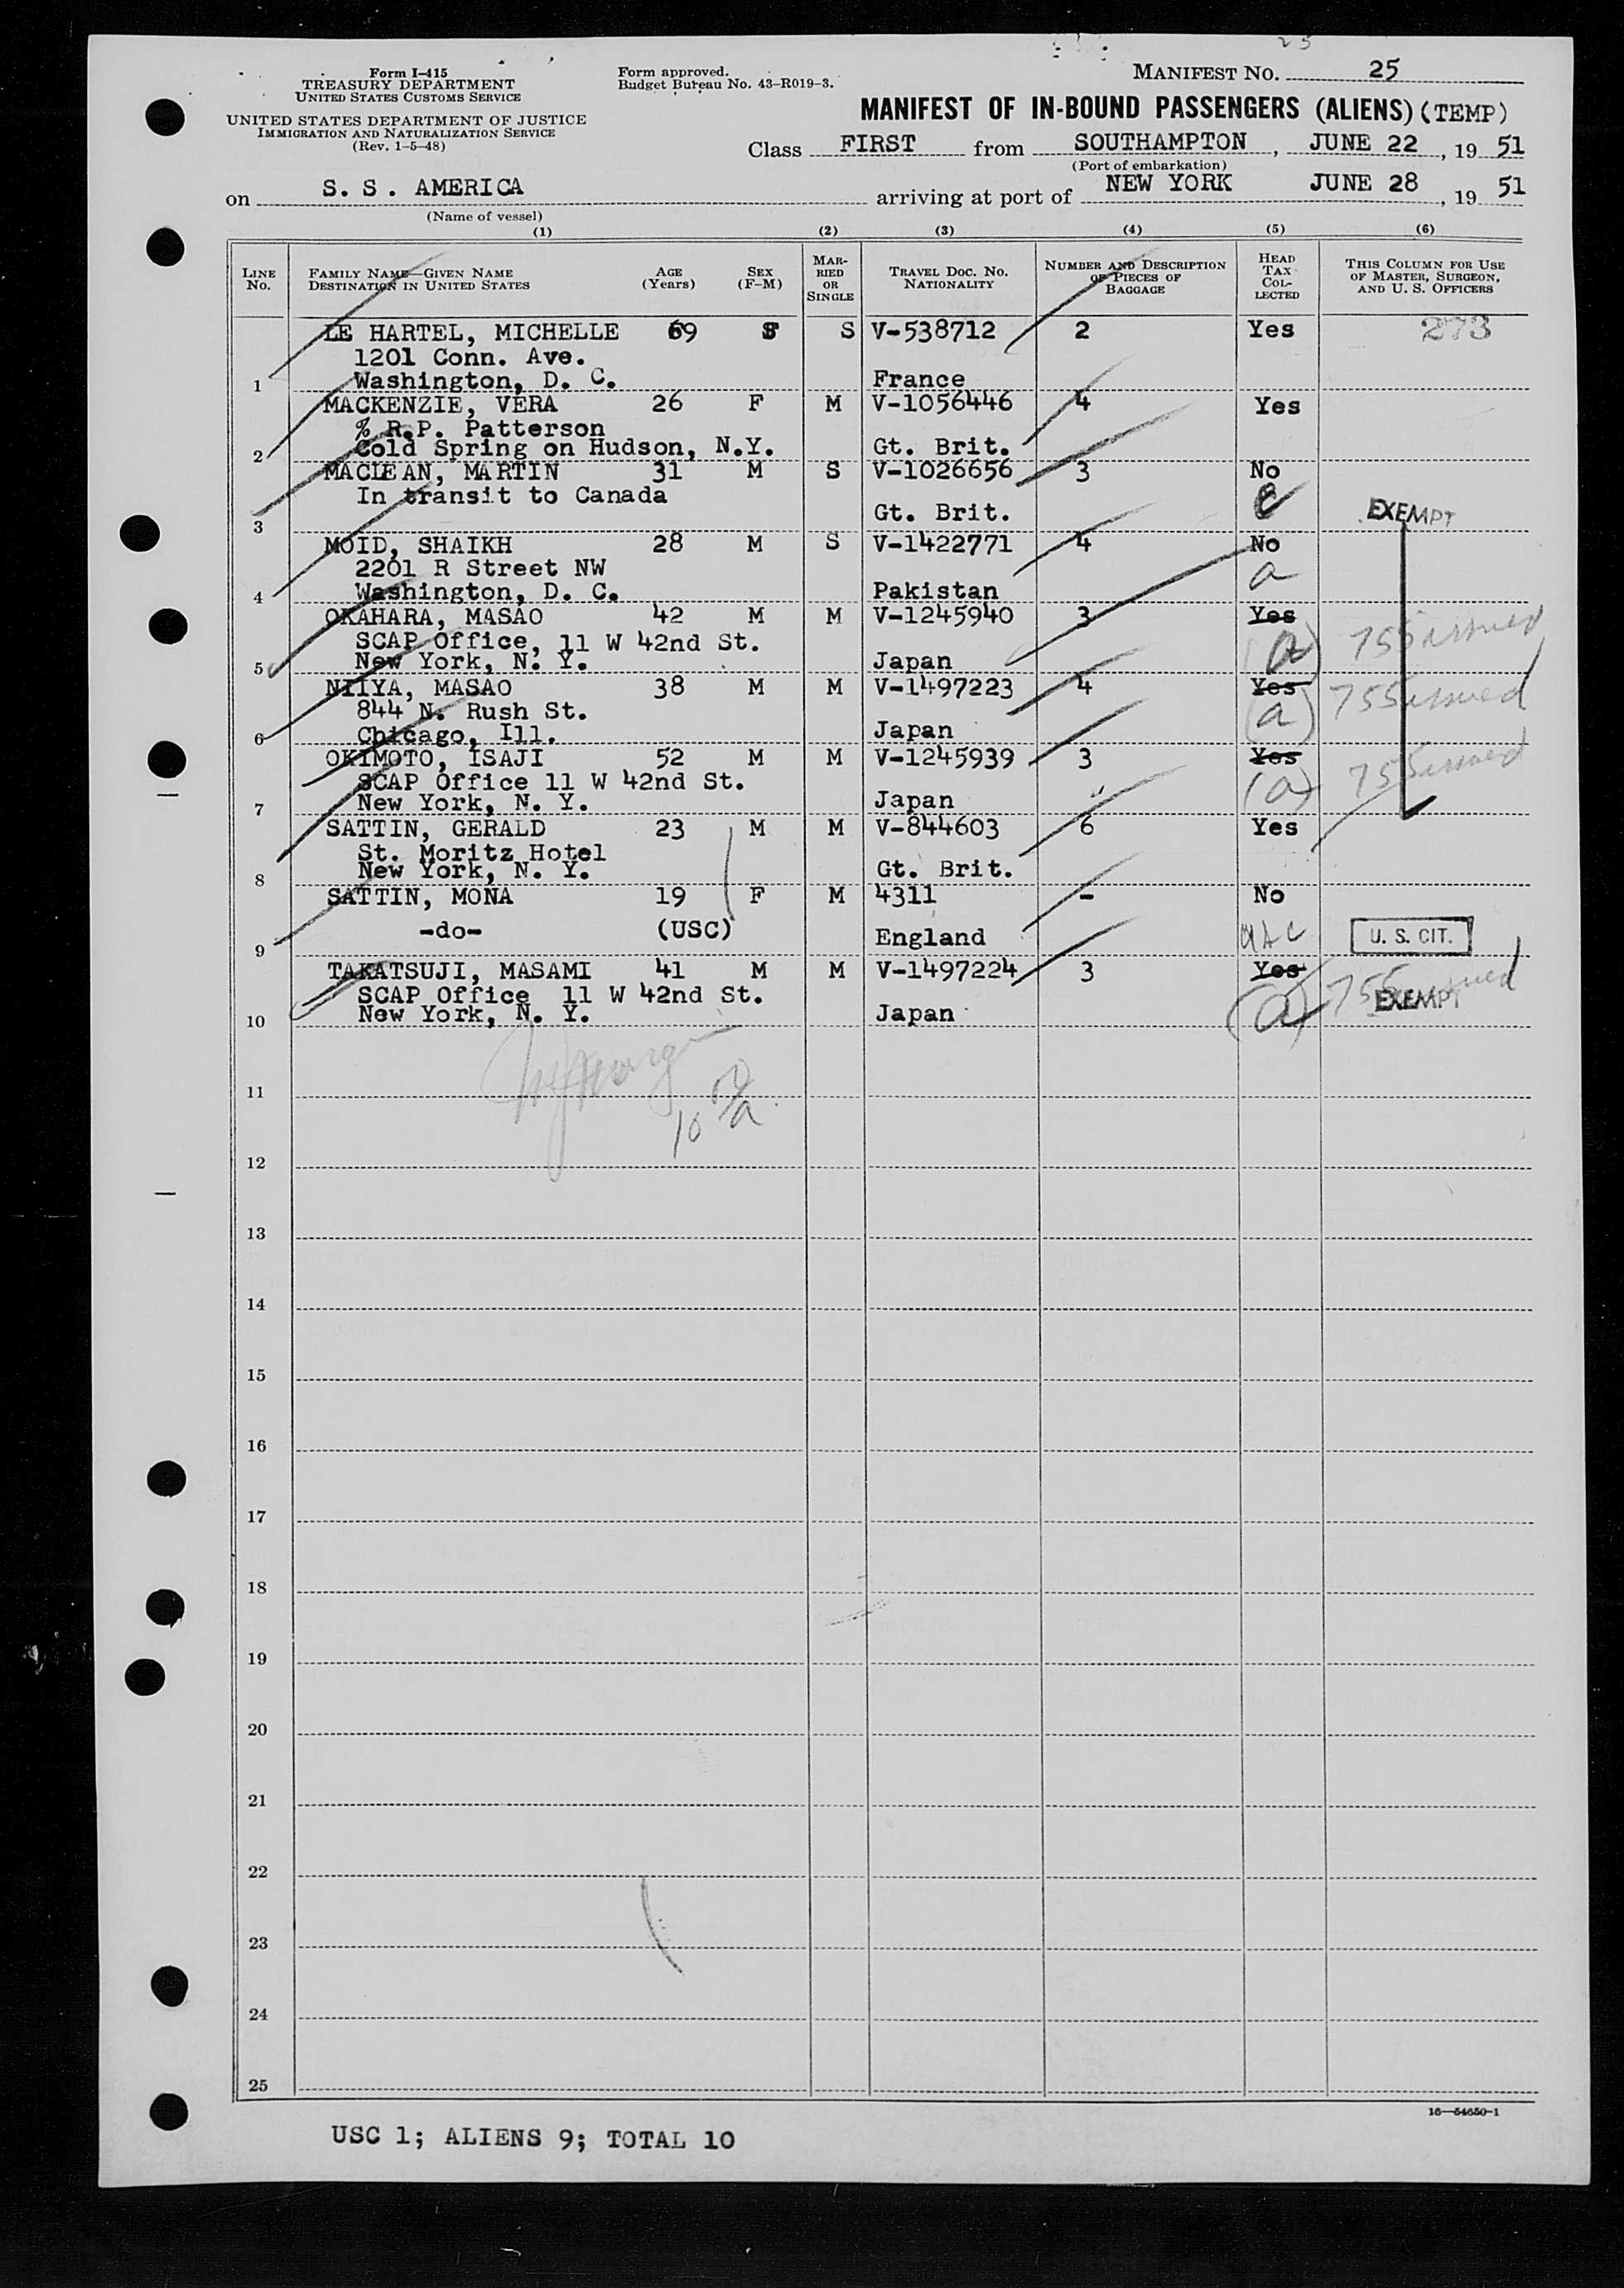 Form I-415
TREASURY DEPARTMENT
UNITED STATES CUSTOMS SERVICE
UNITED STATES DEPARTMENT OF JUSTICE
IMMIGRATION AND NATURALIZATION SERVICE
(Rev. 1-5-48)
Form approved.
Budget Bureau No. 43-R019-3.
MANIFEST NO. 25
MANIFEST OF IN-BOUND PASSENGERS (ALIENS) (TEMP)
Class FIRST from SOUTHAMPTON, JUNE 22, 19 51
(Port of embarkation)
on S. S. AMERICA arriving at port of NEW YORK JUNE 28, 19 51
(Name of vessel)
(1) (2) (3) (4) (5) (6)
LINE NO. FAMILY NAME—GIVEN NAME DESTINATION IN UNITED STATES AGE (Years) SEX (F-M) MARRIED OR SINGLE TRAVEL DOC. NO. NATIONALITY NUMBER AND DESCRIPTION OF PIECES OF BAGGAGE HEAD TAX COLLECTED THIS COLUMN FOR USE OF MASTER, SURGEON, AND U. S. OFFICERS
LE HARTEL, MICHELLE 69 S V-538712 2 Yes 273
1201 Conn. Ave.
1 Washington, D. C. France
MACKENZIE, VERA 26 F M V-1056446 4 Yes
% R.P. Patterson
2 Cold Spring on Hudson, N.Y. Gt. Brit.
MACLEAN, MARTIN 31 M S V-1026656 3 No
In transit to Canada
3 Gt. Brit. EXEMPT
MOID, SHAIKH 28 M S V-1422771 4 No
2201 R Street NW a
4 Washington, D. C. Pakistan
OKAHARA, MASAO 42 M M V-1245940 3 Yes
SCAP Office, 11 W 42nd St. (a) 755 issued
5 New York, N. Y. Japan
NIIYA, MASAO 38 M M V-1497223 4 Yes
844 N. Rush St. (a) 755 issued
6 Chicago, Ill. Japan
OKIMOTO, ISAJI 52 M M V-1245939 3 Yes
SCAP Office 11 W 42nd St. (a) 755 issued
7 New York, N. Y. Japan "
SATTIN, GERALD 23 M M V-844603 6 Yes
St. Moritz Hotel
8 New York, N. Y. Gt. Brit.
SATTIN, MONA 19 F M 4311 - No
9 -do- (USC) England U. S. CIT.
TAKATSUJI, MASAMI 41 M M V-1497224 3 Yes
SCAP Office 11 W 42nd St. (a) 755 issued EXEMPT
10 New York, N. Y. Japan
11
12
13
14
15
16
17
18
19
20
21
22
23
24
25
16—54650-1
USC 1; ALIENS 9; TOTAL 10